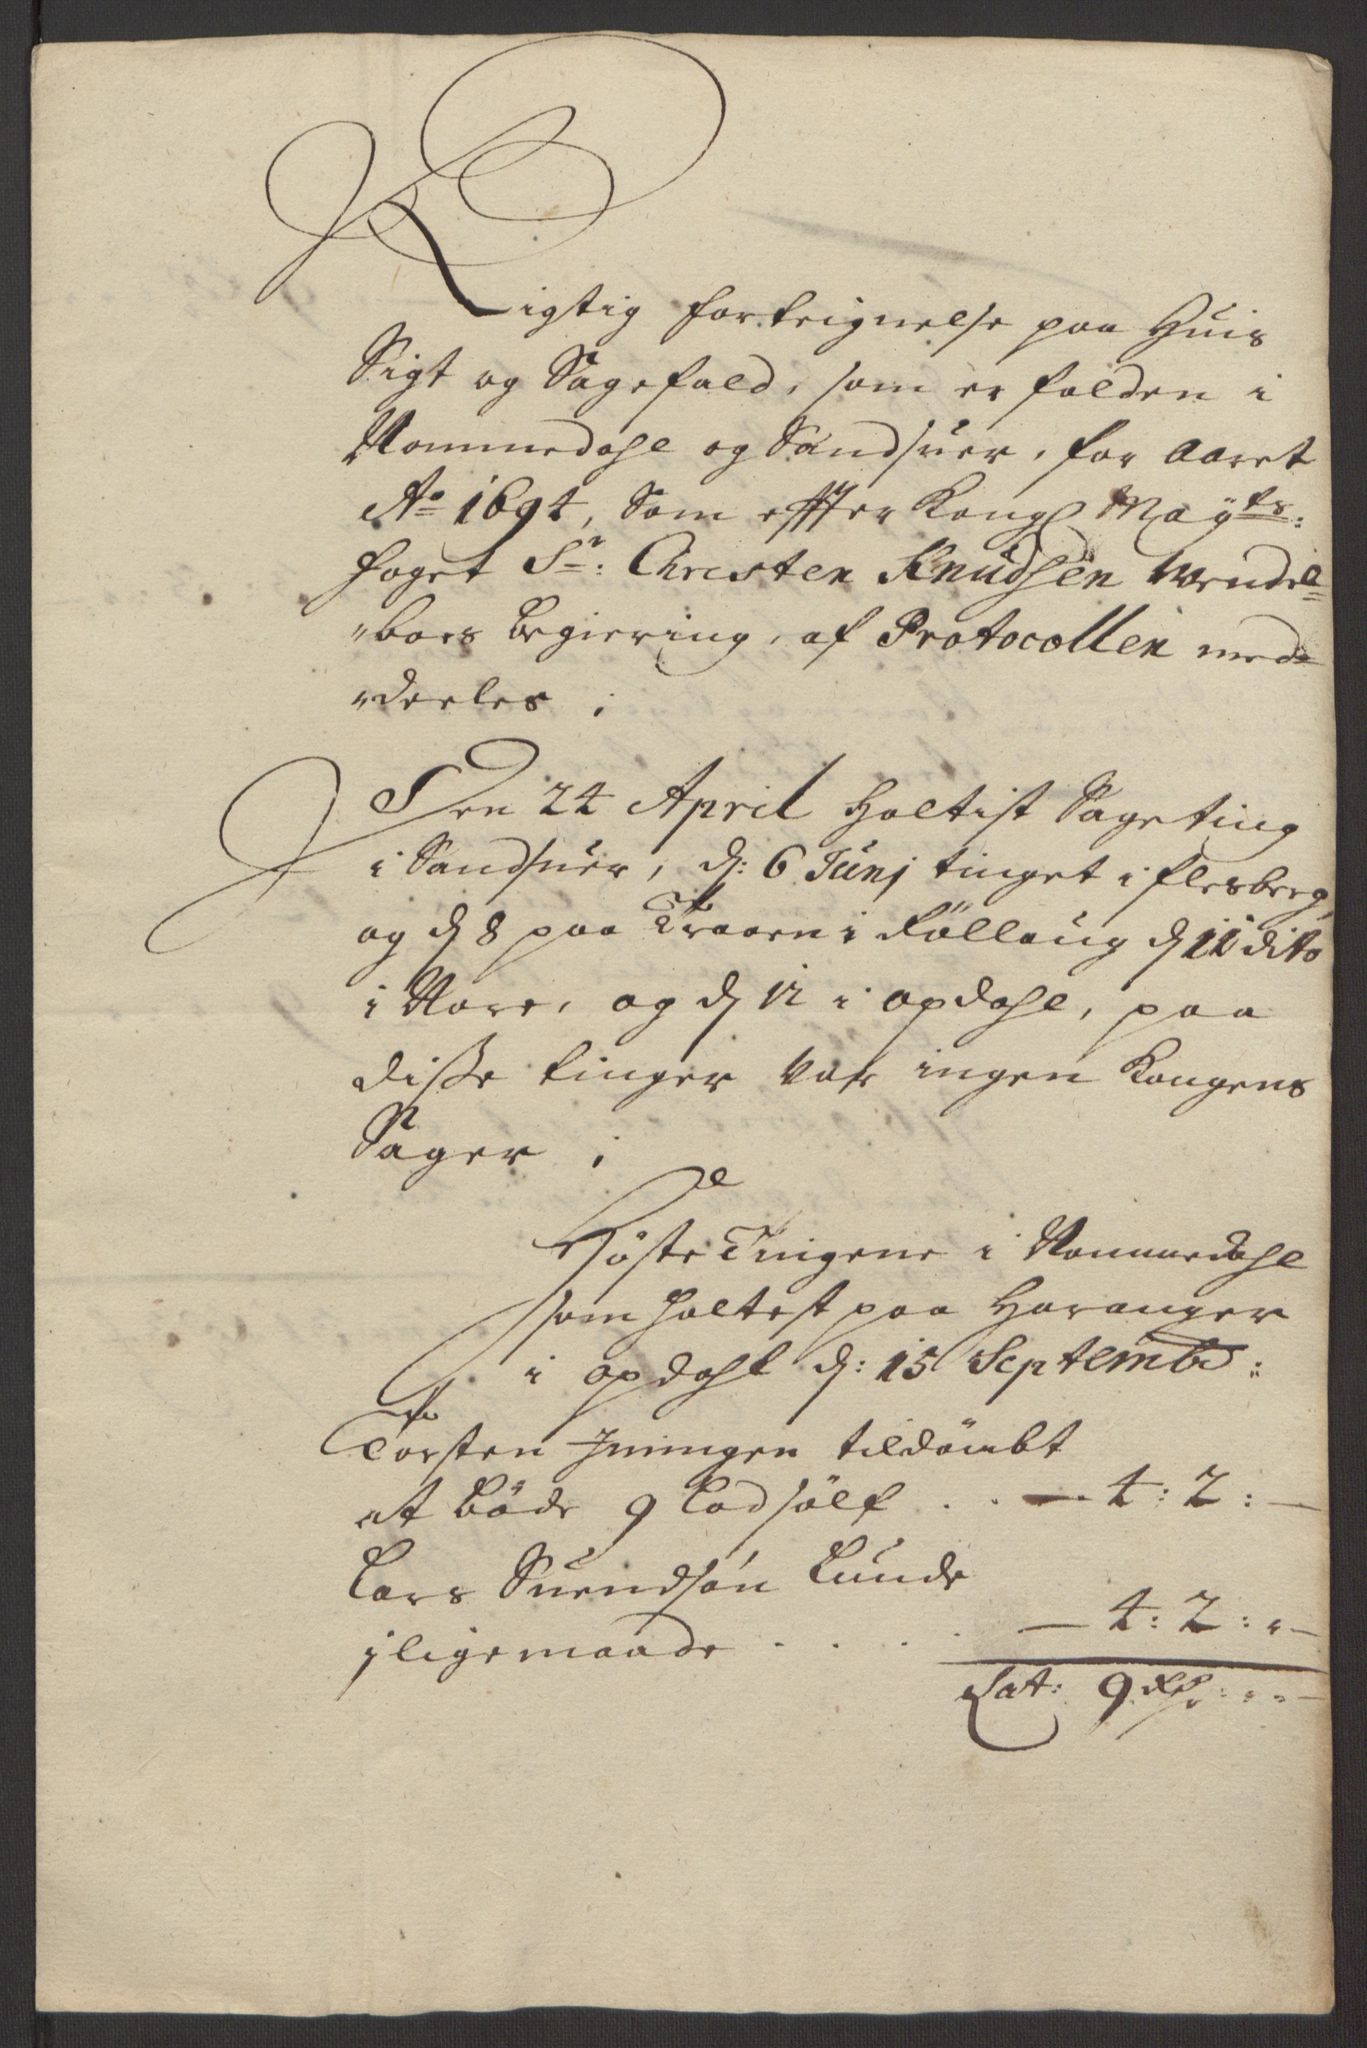 Rigtig forteignelse paa Huis
Sigt og Sagefald, som er falden i
Nommedahl og Sandsuer, for Aaret
Ao 1694, Som effter Kongl Mayts:
foget Sr: Christen Knudsen Wendel=
"boes begiering, af Protocollen med=
"deeles ;
Den 24 April Holtist Sageting
i Sandsuer, d: 6 Junj tinget i flesberg,
og d 8 paa Traaen i Rollaug d 11 dito
i Nore, og d 12 i opdahl, paa
disse tinger var ingen Kongens
Sager ;
Höste Tingene i Nommedahl
som holtest paa Haranger
i opdahl d: 15 Septembr:
Torsten Jnningen tildömbt
at böde 9 Lod sölf . . — 4: 2: —
Lars Suendsön Lunde
jligemaade . . . . — 4: 2: " —
Lat: 9 Rd: " " —